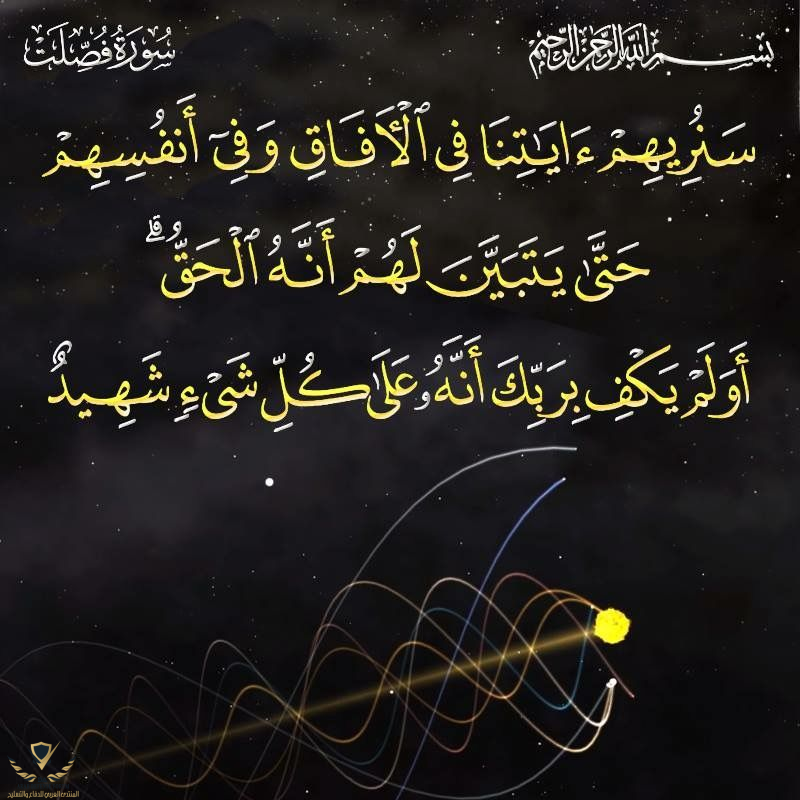 بِسْمِ اللَّهِ الرَّحْمَٰنِ الرَّحِيمِ
سُورَةُ فُصِّلَتْ
سَنُرِيهِمْ ءَايَٰتِنَا فِى ٱلْأَفَاقِ وَفِىٓ أَنفُسِهِمْ
حَتَّىٰ يَتَبَيَّنَ لَهُمْ أَنَّهُ ٱلْحَقُّ ۗ
أَوَلَمْ يَكْفِ بِرَبِّكَ أَنَّهُۥ عَلَىٰ كُلِّ شَىْءٍ شَهِيدٌ
المنتدى العربي للدفاع والتسليح